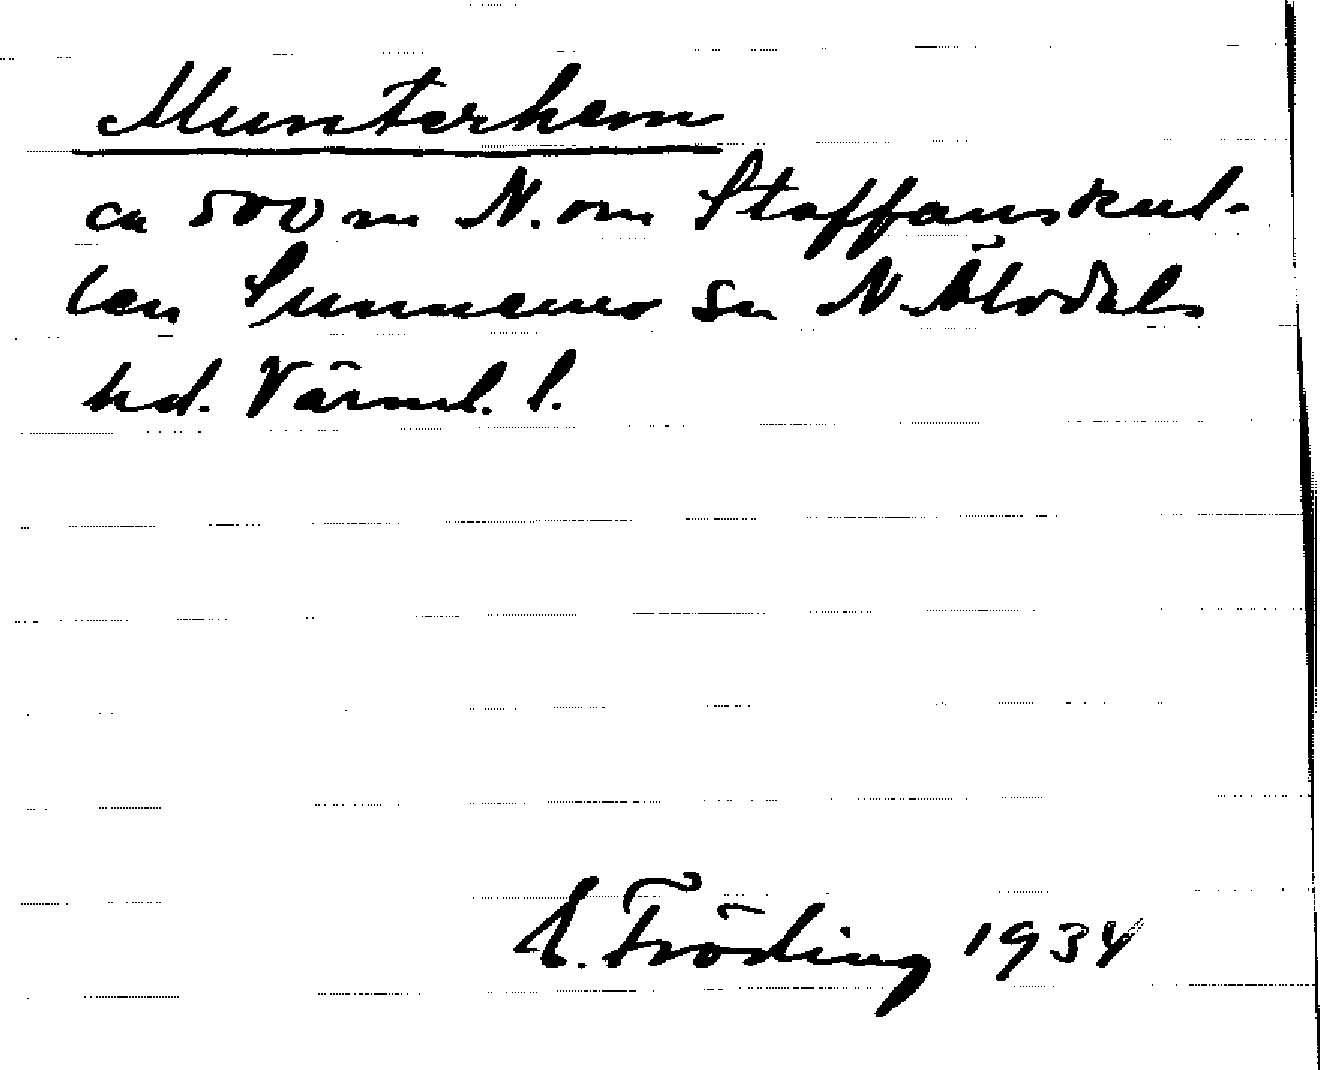 Munterhem
ca 500 m N. om Staffanskul-
len Sunnemo sn N. Älvdals
hd. Värml. l.
E. Fröding 1934